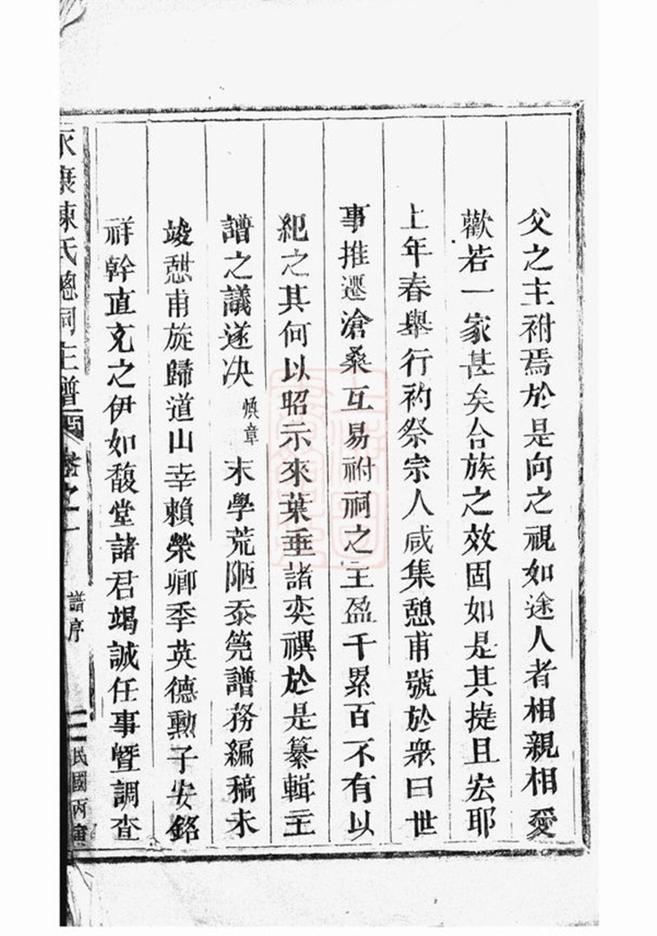 父之主祔焉於是向之視如途人者相親相愛
歡若一家甚矣合族之效固如是其捷且宏耶
上年春舉行礿祭宗人咸集憩甫號於衆曰世
事推遷滄桑互易祔祠之主盈千累百不有以
紀之其何以昭示來葉垂諸奕禩於是纂輯主
譜之議遂决煥章末學荒陋忝筦譜務編稿未
竣憇甫旋歸道山幸賴榮卿季英德勳子安銘
祥幹直克之伊如馥堂諸君竭誠任事曁調查
永康陳氏總祠主譜 卷之一 譜序 民國丙